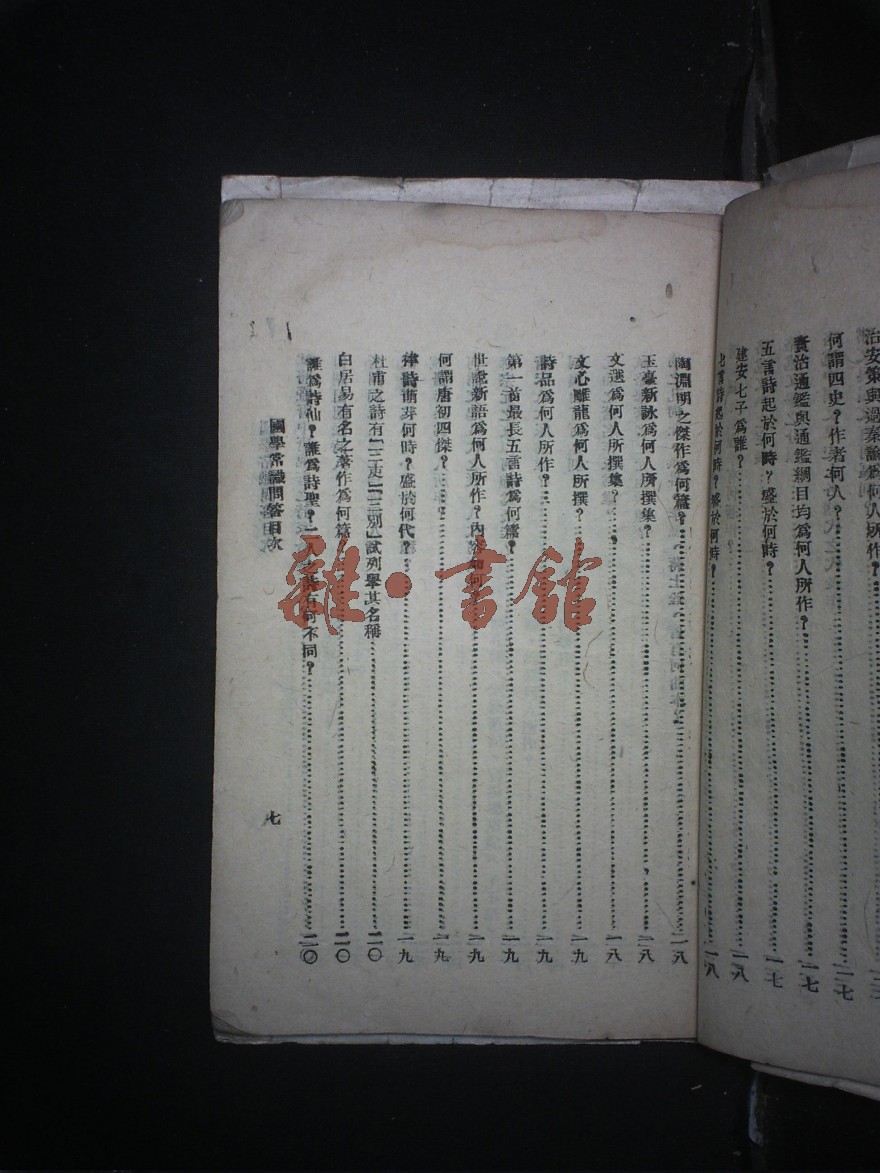 治安策與過秦論爲何人所作？
何謂四史？作者何人？……一七
資治通鑑與通鑑綱目均爲何人所作？……一七
五言詩起於何時？盛於何時？……一七
建安七子爲誰？……一八
七言詩起於何時？盛於何時？……一八
陶淵明之傑作爲何篇？……一八
玉臺新詠爲何人所撰集？……一八
文選爲何人所撰集？……一八
文心雕龍爲何人所撰？……一九
詩品爲何人所作？……一九
第一首最長五言詩爲何篇？……一九
世說新語爲何人所作？內容如何？……一九
何謂唐初四傑？……一九
律詩萌芽何時？盛於何代？……一九
杜甫之詩有「三吏」「三別」試列舉其名稱……二〇
白居易有名之著作爲何篇……二〇
誰爲詩仙？誰爲詩聖？二人之詩有何不同？……二〇
國學常識問答目次
七
雜·書館